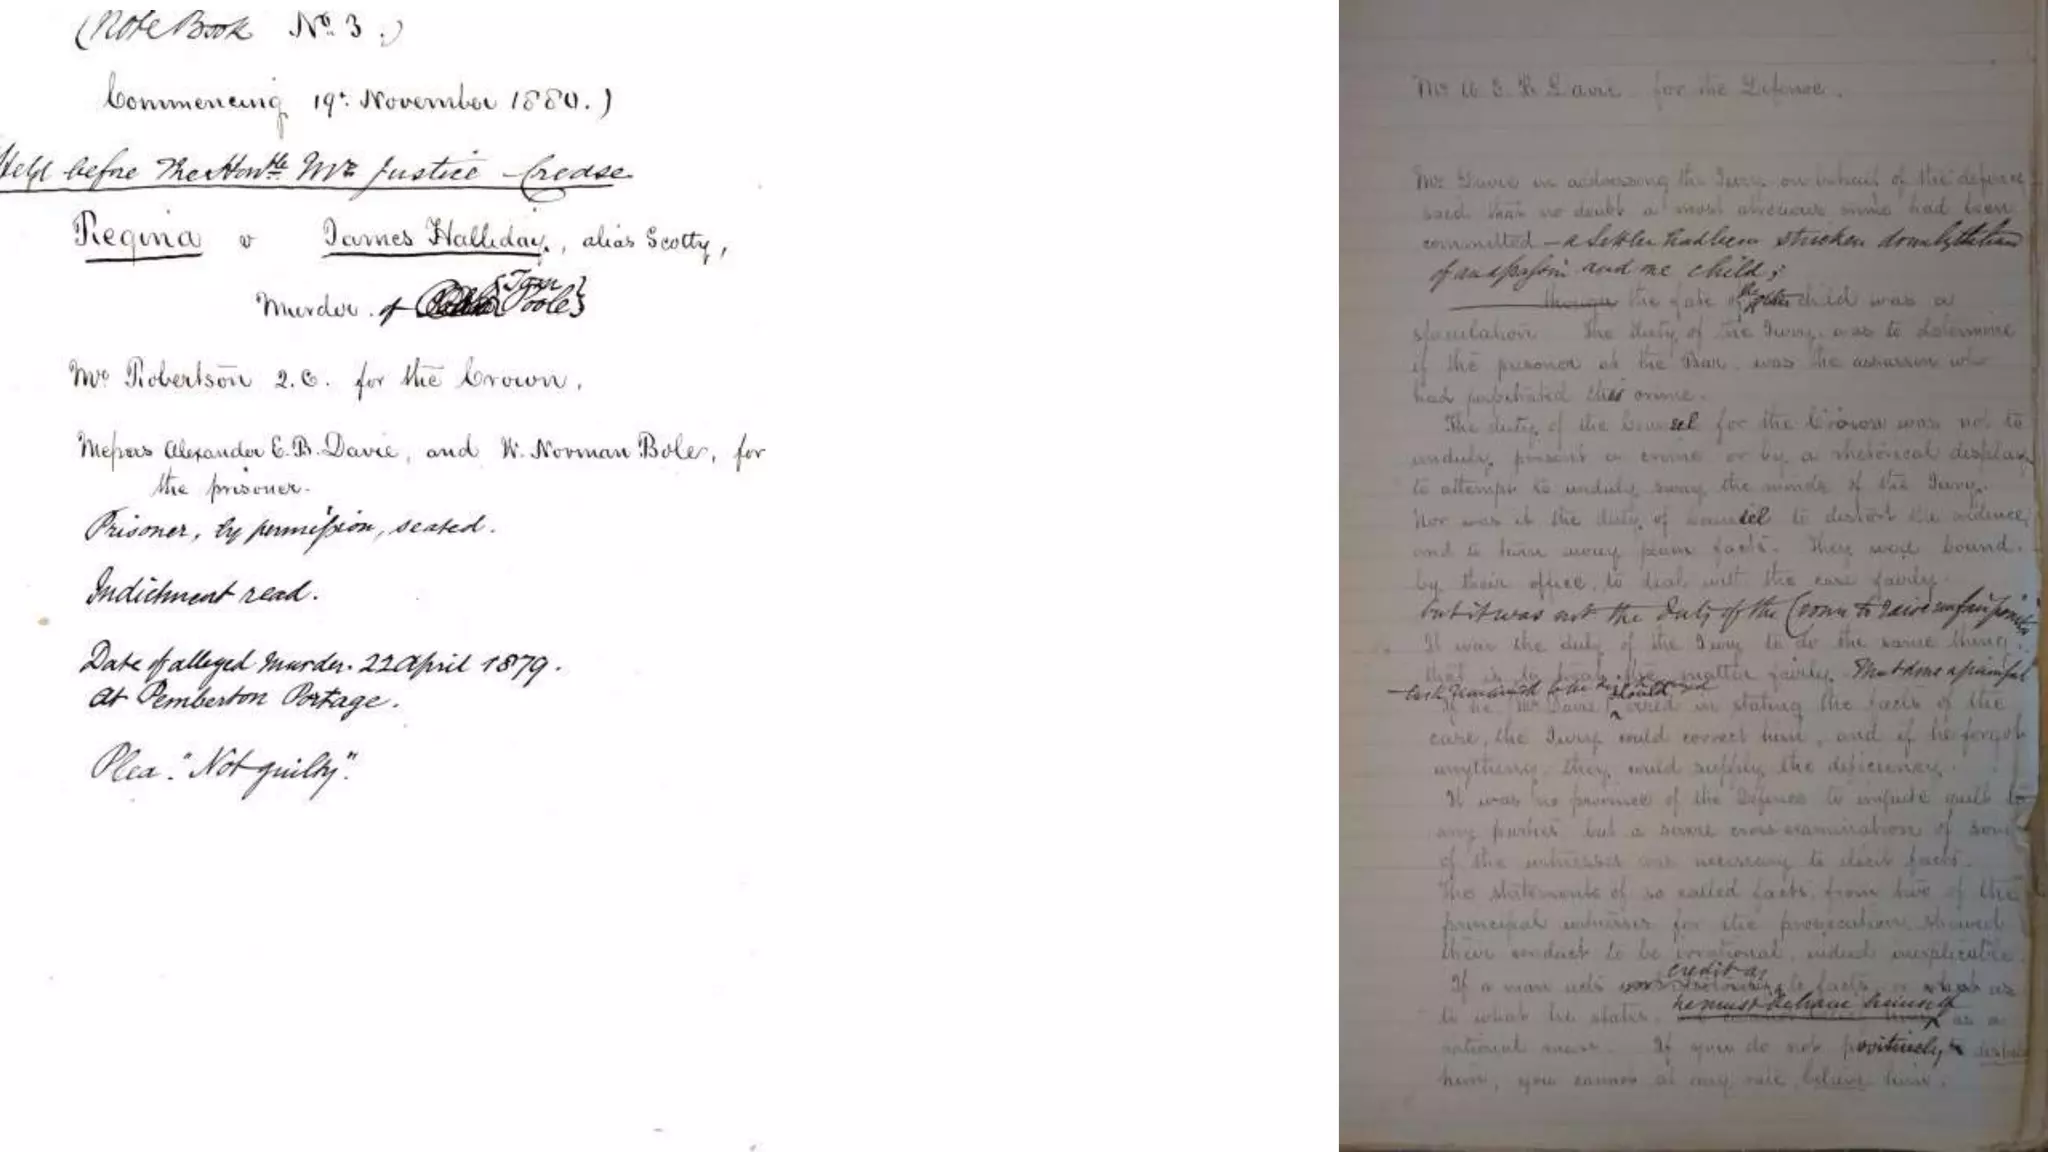 (Note Book No. 3.)
Commencing 19th November 1880.)
Held before The Honble. Mr Justice Crease
Regina v James Halliday, alias Scotty,
Murder of {Tom Poole}
Mr Robertson Q.C. for the Crown.
Messrs Alexander E.B. Davie, and W. Norman Bole, for
the prisoner.
Prisoner, by permission, seated.
Indictment read.
Date of alleged murder. 22 April 1879.
at Pemberton Portage.
Plea. "Not guilty".
Mr A E B Davie for the Defence.
Mr Davie in addressing the Jury on behalf of the defence
said that no doubt a most atrocious crime had been
committed – a settler had been stricken down
and one child;
though the fate of the other child was a
speculation The duty of the Jury was to determine
if the prisoner at the Bar, was the assassin who
had perpetrated this crime.
The duty of the Counsel for the Crown was not to
unduly present a crime or by a rhetorical display
to attempt to unduly sway the minds of the Jury.
Nor was it the duty of counsel to distort the evidence,
and to turn away from facts. They were bound
by their office, to deal with the case fairly
but it was not the duty of the Crown to raise unfair points
It was the duty of the Jury to do the same thing,
that is to treat the matter fairly. But then a painful
task remained to be
If he Mr Davie should erred in stating the facts of the
case, the Jury could correct him, and if he forgot
anything, they could supply the deficiency.
It was no province of the Defence to impute guilt to
any parties but a severe cross-examination of some
of the witnesses was necessary to elicit facts.
The statements of so called facts, from two of the
principal witnesses for the prosecution, showed
their conduct to be irrational, indeed inexplicable.
credit as
If a man acts facts, or what as
he must behave himself
to what he states, as a
rational man. If you do not positively
him, you cannot at any rate, believe him.